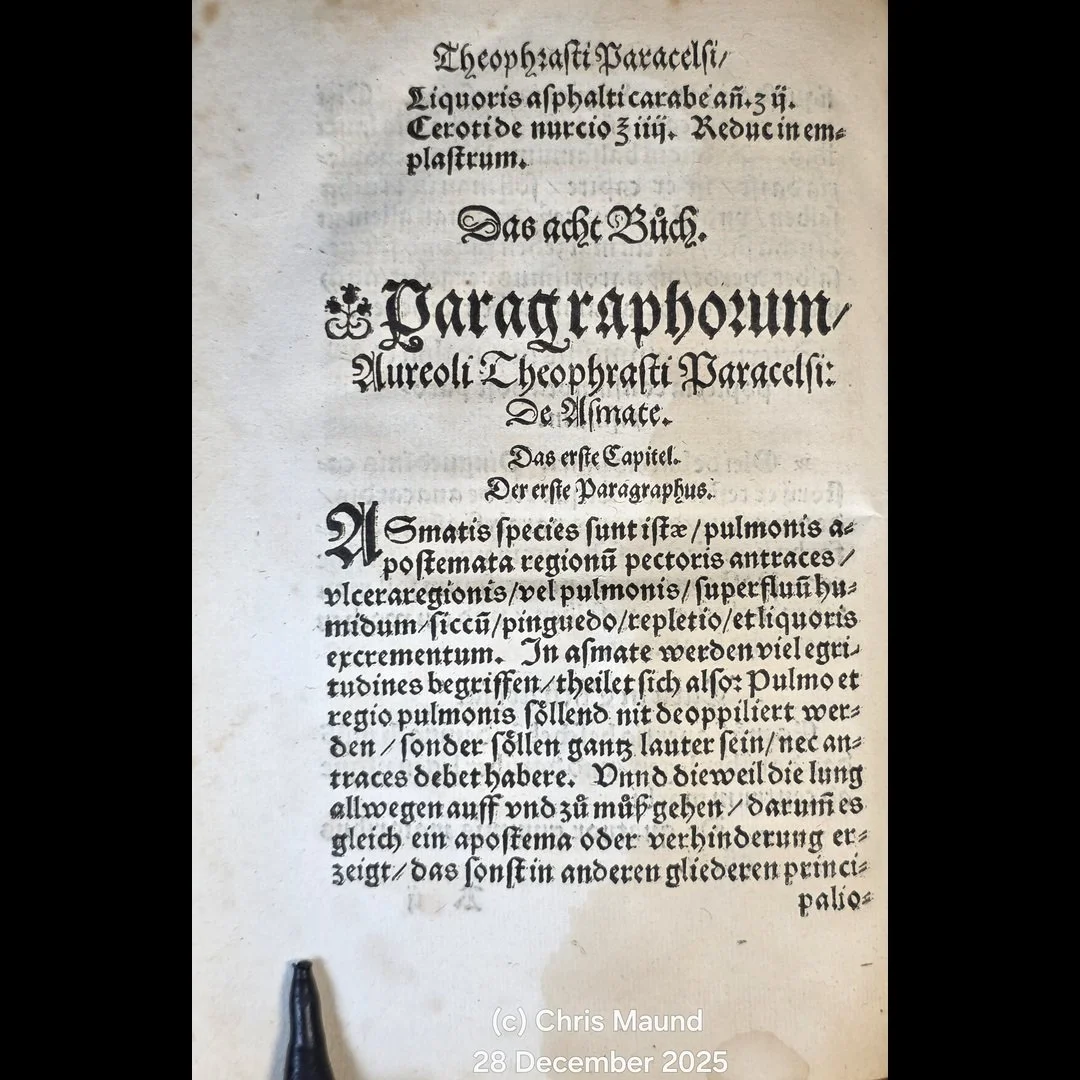 Theophrasti Paracelsi/
Liquoris asphalti carabe añ.ʒ ij.
Ceroti de nurcio ℥ iiij. Reduc in em⸗
plastrum.
Das acht Bůch.
Paragraphorum/
Aureoli Theophrasti Paracelsi:
De Asmate.
Das erste Capitel.
Der erste Paragraphus.
ASmatis species sunt istæ/pulmonis a⸗
postemata regionũ pectoris antraces/
vlcera regionis/vel pulmonis/superfluũ hu⸗
midum/siccũ/pinguedo/repletio/et liquoris
excrementum. In asmate werden viel egri⸗
tudines begriffen/theilet sich also: Pulmo et
regio pulmonis söllend nit deoppiliert wer⸗
den/sonder söllen gantz lauter sein/nec an⸗
traces debet habere. Vnnd dieweil die lung
allwegen auff vnd zů můß gehen/darum̃ es
gleich ein apostema oder verhinderung er⸗
zeigt/das sonst in anderen gliederen princi⸗
palio⸗
(c) Chris Maund
28 December 2025